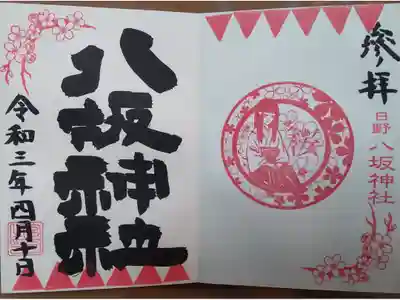 參拝
日野
八坂神社
八坂神社
令和三年四月十日